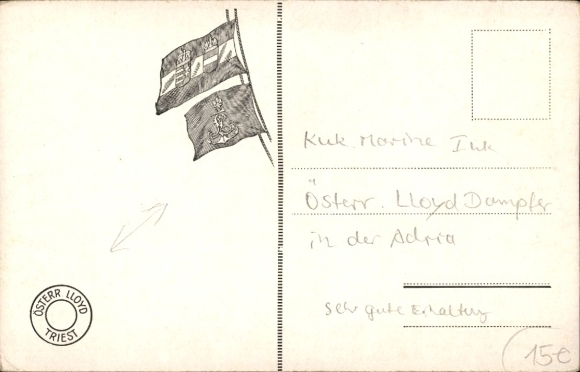 KuK. Marine Ink
Österr. Lloyd Dampfer
in der Adria
Sehr gute Erhaltung
15€
ÖSTERR LLOYD
TRIEST